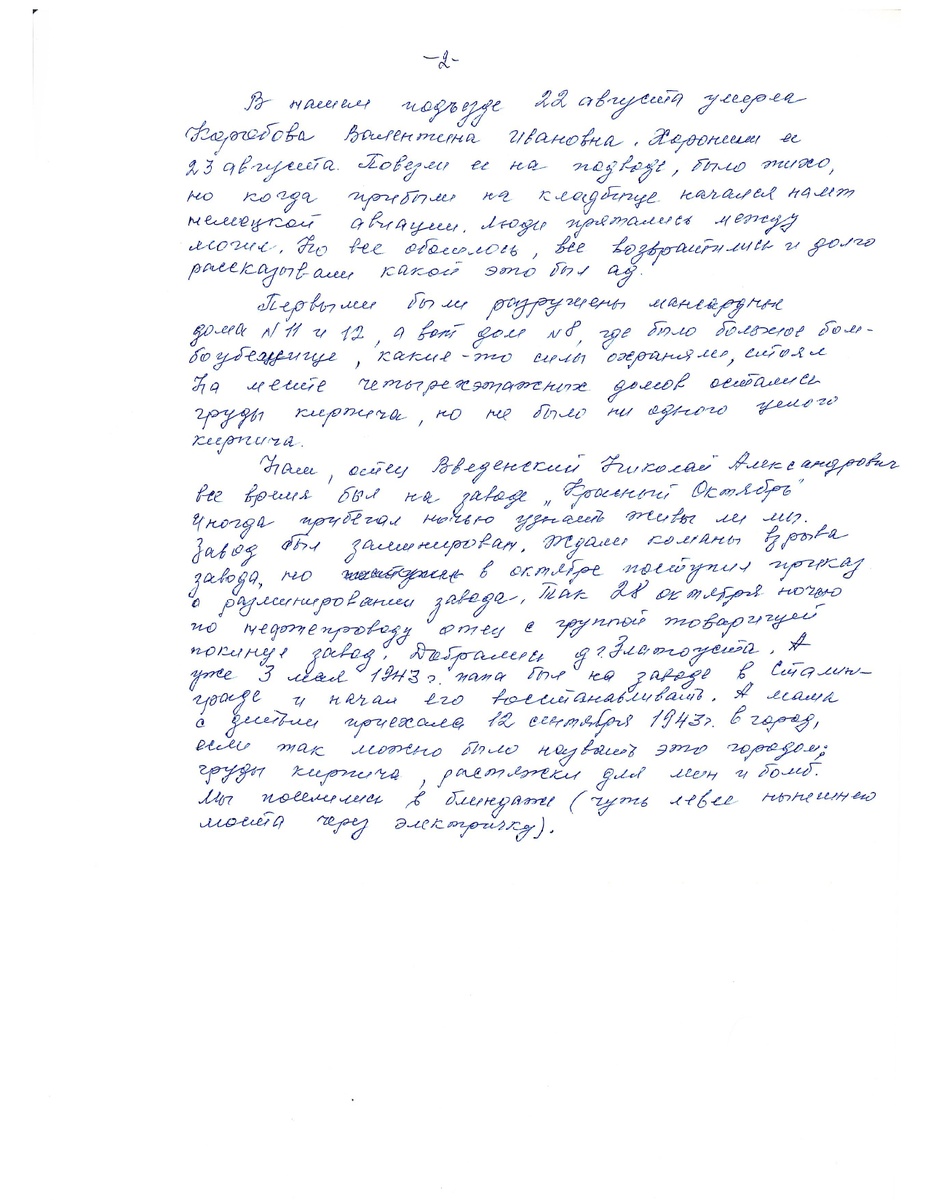 -2-
В нашем подъезде 22 августа умерла
Валентина Ивановна. Хоронили ее
23 августа. Повезли ее на подводе, было тихо,
но когда прибыли на кладбище начался налет
немецкой авиации. Люди прятались между
могил. Но все обошлось, все возвратились и долго
рассказывали какой это был ад.
Первыми были разрушены мансардные
дома №11 и 12, а вот дом №8, где было большое бом-
боубежище, какие-то силы охраняли, стоял
На месте четырехэтажных домов остались
груды кирпича, но не было ни одного целого
кирпича.
Наш, отец Введенский Николай Александрович
все время был на заводе „Красный Октябрь"
Иногда прибегал ночью узнать живы ли мы.
Завод был заминирован. Ждали команы взрыва
завода, но в октябре поступил приказ
о разминировании завода. Так 28 октября ночью
по нефтепроводу отец с группой товарищей
покинул завод. Добрались д г. Златоуста. А
уже 3 мая 1943 г. папа был на заводе в Сталин-
граде и начал его восстанавливать. А мама
с детьми приехала 12 сентября 1943 г. в город,
если так можно было назвать это городом:
груды кирпича, растяжки для мин и бомб.
Мы поселились в блиндаже (чуть левее нынешнего
моста через электричку).